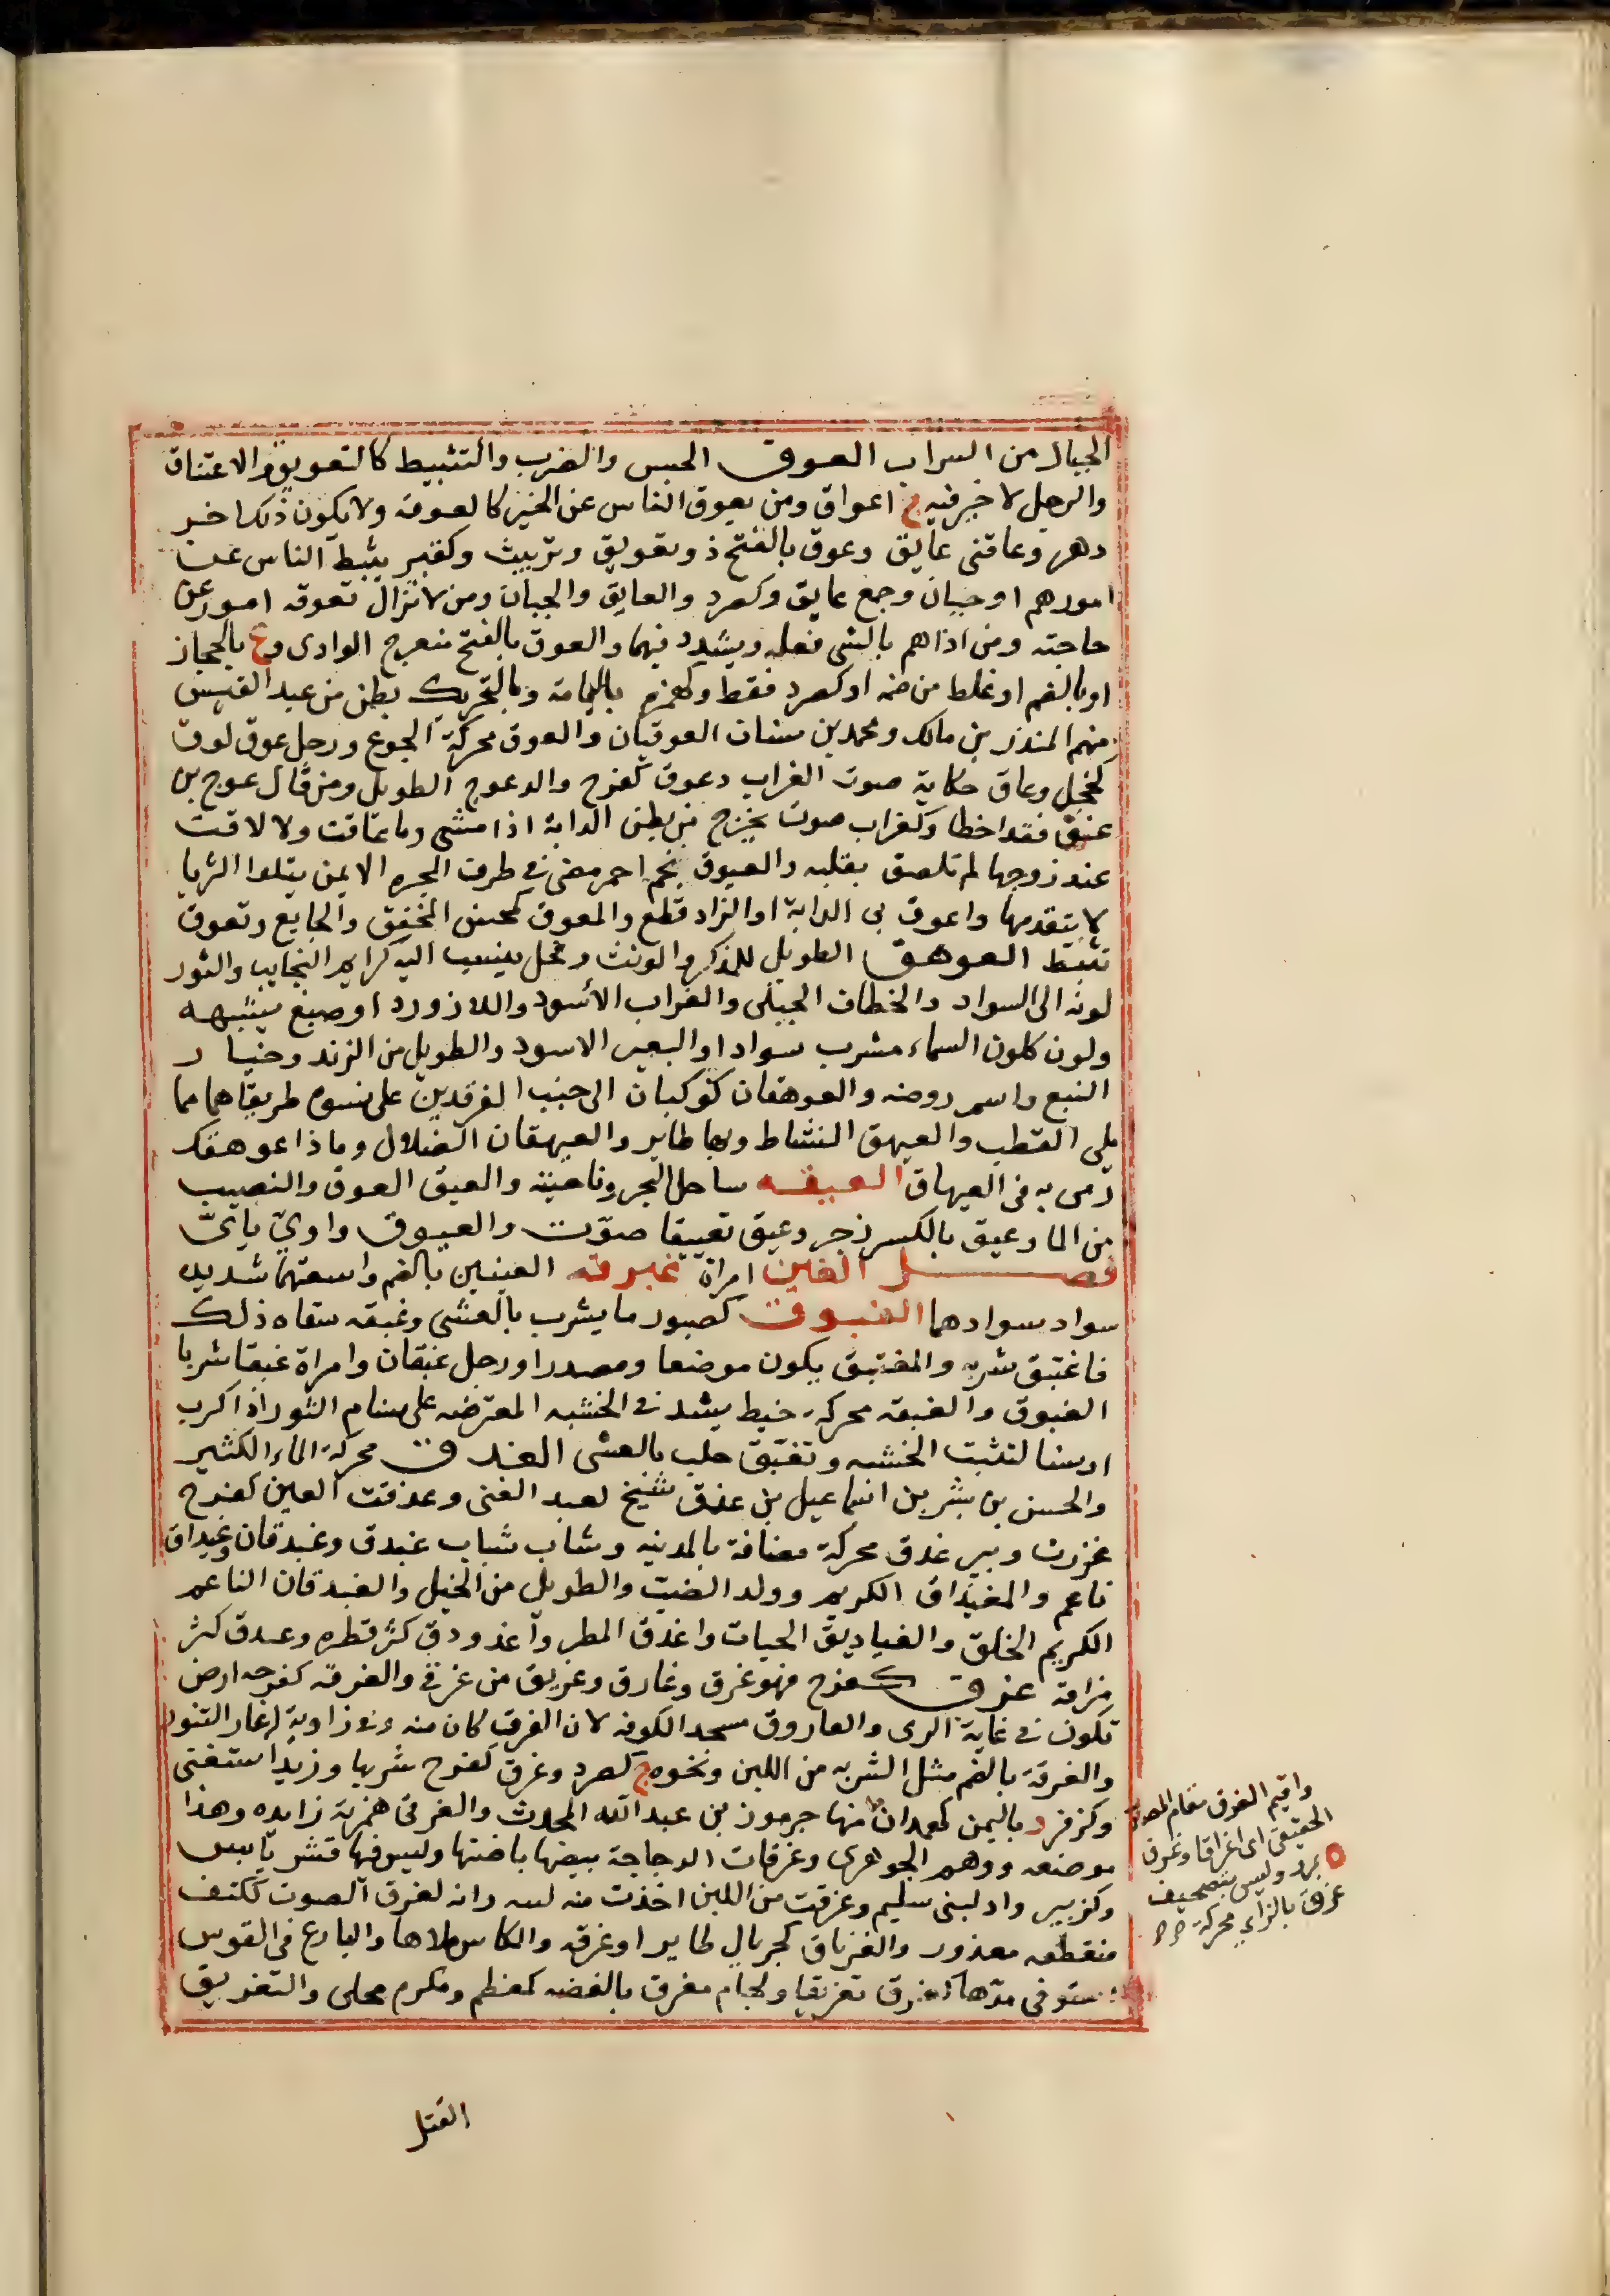 الجبال من السراب العوق الحبس والضرب والتثبيط كالتعويق والاعتناق
والرجل لا خير فيه ج اعواق ومن يعوق الناس عن الخير كالعوقة ولا يكون ذلك اخر
دهر وعاقنى عايق وعوق بالفتح ذو تعويق وتربيث وككتير يثبط الناس عن
امورهم او جبان وجمع عايق وكصرد والعايق والجبان ومن لا تزال تعوقه امور عن
حاجته ومن اذا هم بالشى فعله ويشدد فيهما والعوق بالفتح منعرج الوادى وع بالحجاز
او بالضم او غلط من ضمه او كصرد فقط وكهمزه باليمامة وبالتحريك بطن من عبد القيس
منهم المنذر بن مالك ومحمد بن سنان العوقيان والعوق محركة الجوع ورجل عوق لوق
كخجل وعاق حكاية صوت الغراب وعوق كفرح والد عوج الطويل ومن قال عوج بن
عنق فقد اخطا وكغراب صوت يخرج من بطن الدابة اذا مشى وما عاقت ولا لاقت
عند زوجها لم تلصق بقلبه والعيوق نجم احمر مضى فى طرف المجره الايمن يتلوا الثريا
لا يتقدمها واعوق بى الدابة او الزاد قطع والمعوق كمحسن المخفق والجايع وتعوق
تثبط العوهق الطويل للمذكر والمونث وفحل ينسب اليه كرايم النجايب والثور
لونه الى السواد والخطاف الجبلى والغراب الاسود واللازورد او صبغ يشبهه
ولون كلون السماء مشرب سوادا والبعير الاسود والطويل من الربد وخيار
النبع واسم روضه والعوهقان كوكبان الى جنب الفرقدين على نسق طريقاهما مما
يلى القطب والعيهق النشاط وبها طاير والعيهقان الضلال وما ذا عوهقك
رمى به فى العيهاق العيقه ساحل البحر وناحيته والعيق العوق والنصيب
من الما وعيق بالكسر زجر وعيق تعييقا صوّت والعيوق واوىّ يائىّ
فصل الغين امراة غبرقه العينين بالضم واسعتهما شديده
سواد سوادهما الغبوق كصبور ما يشرب بالعشى وغبقه سقاه ذلك
فاغتبق شربه والمغتبق يكون موضعا ومصدرا ورجل غبقان وامراة غبقا شربا
الغبوق والغبقه محركه خيط يشد فى الخشبه المعترضه على سنام الثور اذا كرب
او سنا لتثبت الخشبه وتغبق حلب بالعشى الغدق محركة الماء الكثير
والحسن بن بشر بن اسماعيل بن غدق شيخ لعبد الغنى وغدقت العين كفرح
غزرت وبير غدق محركة مضافة بالمدينه وشاب شباب غيدق وغيدقان وغيداق
ناعم والغيداق الكريم وولد الضب والطويل من الخيل والغيدقان الناعم
الكريم الخلق والغياديق الحيات واغدق المطر واغدودق كثر قطره وغيدق كثر
بزاقه غرق كفرح فهو غرق وغارق وغريق من غرقى والغرقه كفرحه ارض
تكون فى غاية الرى والغاروق مسجد الكوفه لان الغرق كان منه وفى زاوية له فار التنور
والغرقة بالضم مثل الشربه من اللبن ونحوه ج كصرد وغرق كفرح شربها وزيد استغنى
وكزفر د باليمن لهمدان منها جرموز بن عبد الله المحدث والغرقئ همزته زايده وهذا
موضعه ووهم الجوهرى وغرقات الدجاجة بيضها باضتها وليس لها قشر يابس
وكزبير واد لبنى سليم وغرقت من اللبن اخذت منه كثبه وانه لغرق الصوت ككتف
منقطعه مذعور والغرياق كجريال طاير واغرقه والكاس ملاها والنازع فى القوس
استوفى مدها كغرق تغريقا ولجام مغرق بالفضه كمعظم ومكرم محلى والتغريق
القتل
واقيم الغرق مقام المصدر
الحقيقى اى اغراقا وغرق
بمرو وليس بتصحيف
غزق بالزاى محركة